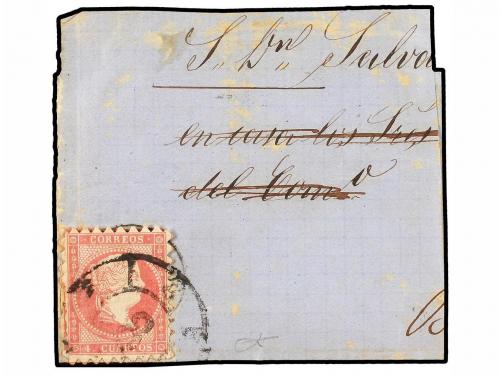 S. Dn. Salva
en casa los Srs
del Com.o
CORREOS
4 CUARTOS